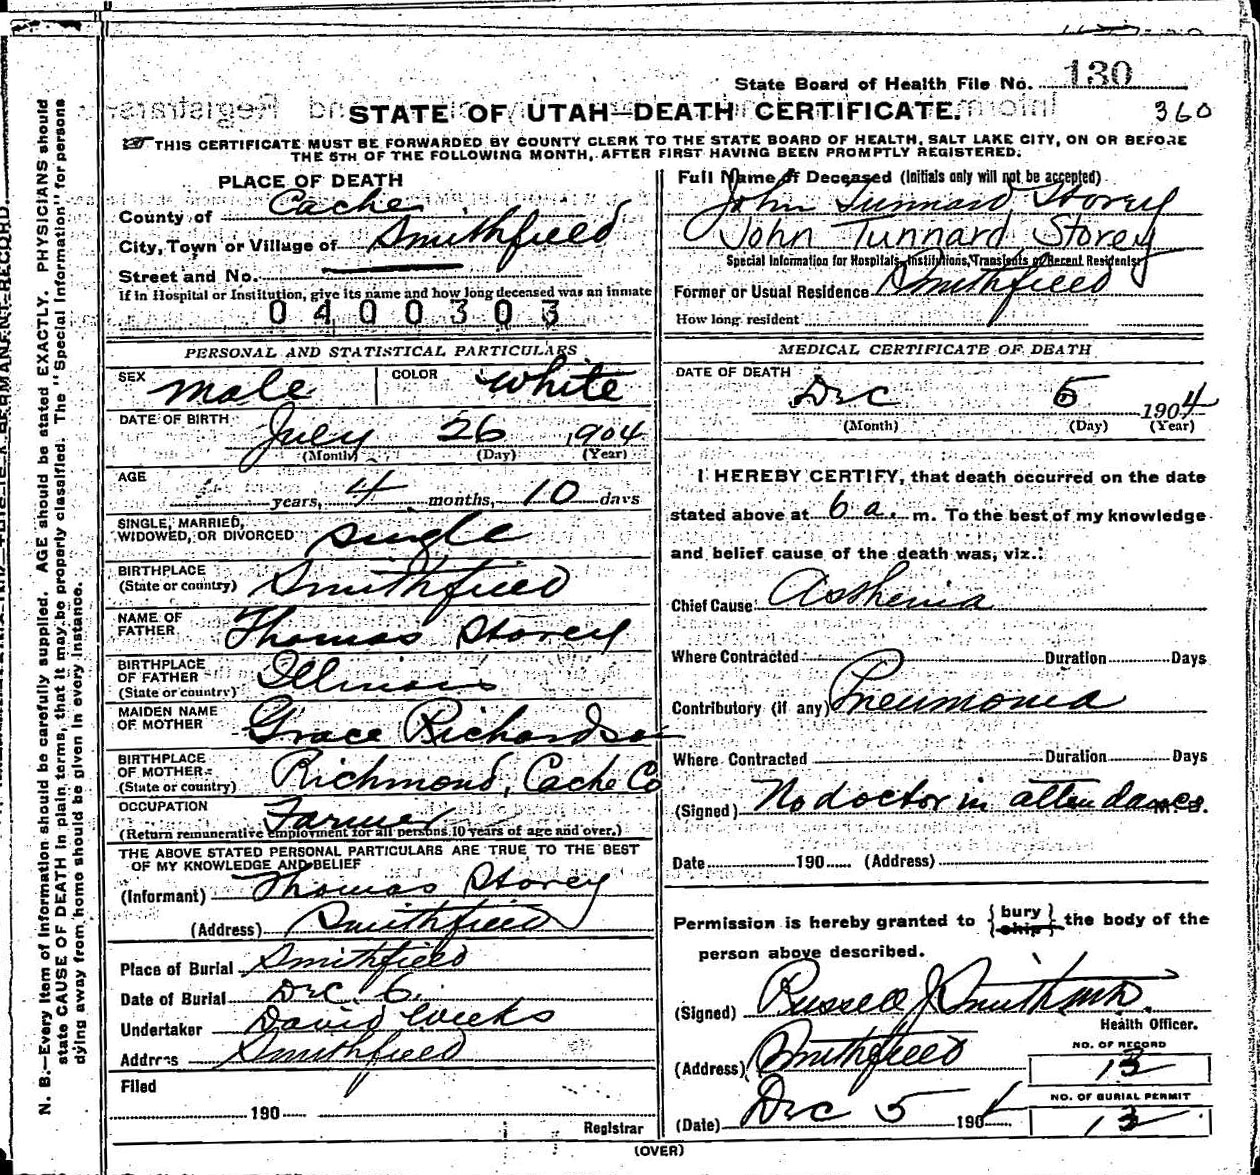 State Board of Health File No. 130
STATE OF UTAH—DEATH CERTIFICATE.
360
THIS CERTIFICATE MUST BE FORWARDED BY COUNTY CLERK TO THE STATE BOARD OF HEALTH, SALT LAKE CITY, ON OR BEFORE
THE 5TH OF THE FOLLOWING MONTH, AFTER FIRST HAVING BEEN PROMPTLY REGISTERED.
PLACE OF DEATH
County of Cache
City, Town or Village of Smithfield
Street and No.
If in Hospital or Institution, give its name and how long deceased was an inmate
0400303
PERSONAL AND STATISTICAL PARTICULARS
SEX male COLOR white
DATE OF BIRTH July 26 1904
(Month) (Day) (Year)
AGE years, 4 months, 10 days
SINGLE, MARRIED,
WIDOWED, OR DIVORCED single
BIRTHPLACE
(State or country) Smithfield
NAME OF
FATHER Thomas Storey
BIRTHPLACE
OF FATHER
(State or country) Illinois
MAIDEN NAME
OF MOTHER Grace Richardso
BIRTHPLACE
OF MOTHER
(State or country) Richmond, Cache Co
OCCUPATION Farmer
(Return remunerative employment for all persons 10 years of age and over.)
THE ABOVE STATED PERSONAL PARTICULARS ARE TRUE TO THE BEST
OF MY KNOWLEDGE AND BELIEF
(Informant) Thomas Storey
(Address) Smithfield
Place of Burial Smithfield
Date of Burial Dec. 6.
Undertaker David Weeks
Address Smithfield
Filed
190
Registrar
Full Name of Deceased (Initials only will not be accepted)
John Tunnard Storey
John Tunnard Storey
Special Information for Hospitals, Institutions, Transients or Recent Residents:
Former or Usual Residence Smithfield
How long resident
MEDICAL CERTIFICATE OF DEATH
DATE OF DEATH
Dec 5 1904
(Month) (Day) (Year)
I HEREBY CERTIFY, that death occurred on the date
stated above at 6 a. m. To the best of my knowledge
and belief cause of the death was, viz.:
Chief Cause: Asthenia
Where Contracted Duration Days
Contributory (if any) Pneumonia
Where Contracted Duration Days
(Signed) No doctor in attendance M. D.
Date 190 (Address)
Permission is hereby granted to {bury ship} the body of the
person above described.
(Signed) Russell J Smith M.D.
Health Officer.
(Address) Smithfield
NO. OF RECORD
13
(Date) Dec 5 1904
NO. OF BURIAL PERMIT
13
(OVER)
N. B.—Every item of information should be carefully supplied. AGE should be stated EXACTLY. PHYSICIANS should
state CAUSE OF DEATH in plain terms, that it may be properly classified. The "Special Information" for persons
dying away from home should be given in every instance.